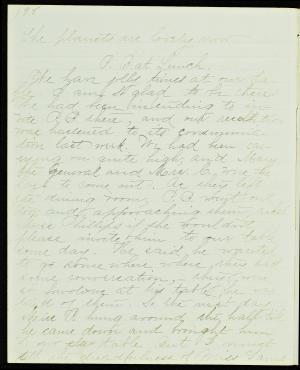 198
The planets are lovely now
P.P. at Lunch.
We have jolly times at our ta-
ble. I am so glad to be there
We had been intending to in-
vite P.P. there, and our
was hastened to its consumma-
tion last week. We had been car-
rying on quite high, and Mary
the general and Mary C. were the
last to come out. As they left
the dining room, P.P. went out
too and approaching them, asked
Miss Phillips if she wouldn't
please invite them to our table
some day. He said he wanted
to go some where where they had
some conversation; they were
so at his table he was
tired of them. So the next day
Miss P. hung around the hall till
he came down and brought him
to our table. But I
tell the of Miss